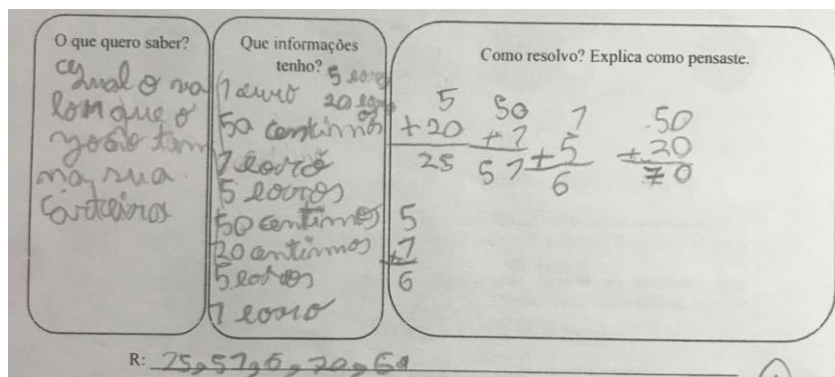 O que quero saber?
Qual o va
lor que o
João tem
na sua
carteira
Que informações
tenho? 5 eoros
1 euro 20 eoros
50 centimos
1 eoro
5 eouros
50 centimos
20 centimos
5 eoros
1 eouro
Como resolvo? Explica como pensaste.
5 50 1 50
+20 +1 +5 +20
25 51 6 70
5
+1
6
R: 25,51,6,70,6